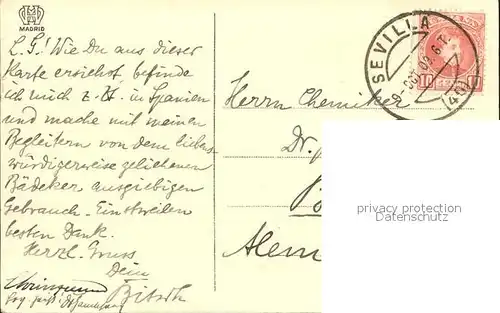 MADRID
L.G.! Wie Du aus dieser
Karte ersiehst, befinde
ich mich z. Zt. in Spanien
und mache mit meinen
Begleitern von dem liebens-
würdigerweise geliehenen
Bädeker ausgiebigen
Gebrauch. Einstweilen
besten Dank.
Herzl. Gruss
Dein
Herrn Chemiker
Dr.
Alem
SEVILLA
OCT 09. 6 T.
10 10
privacy protection
Datenschutz